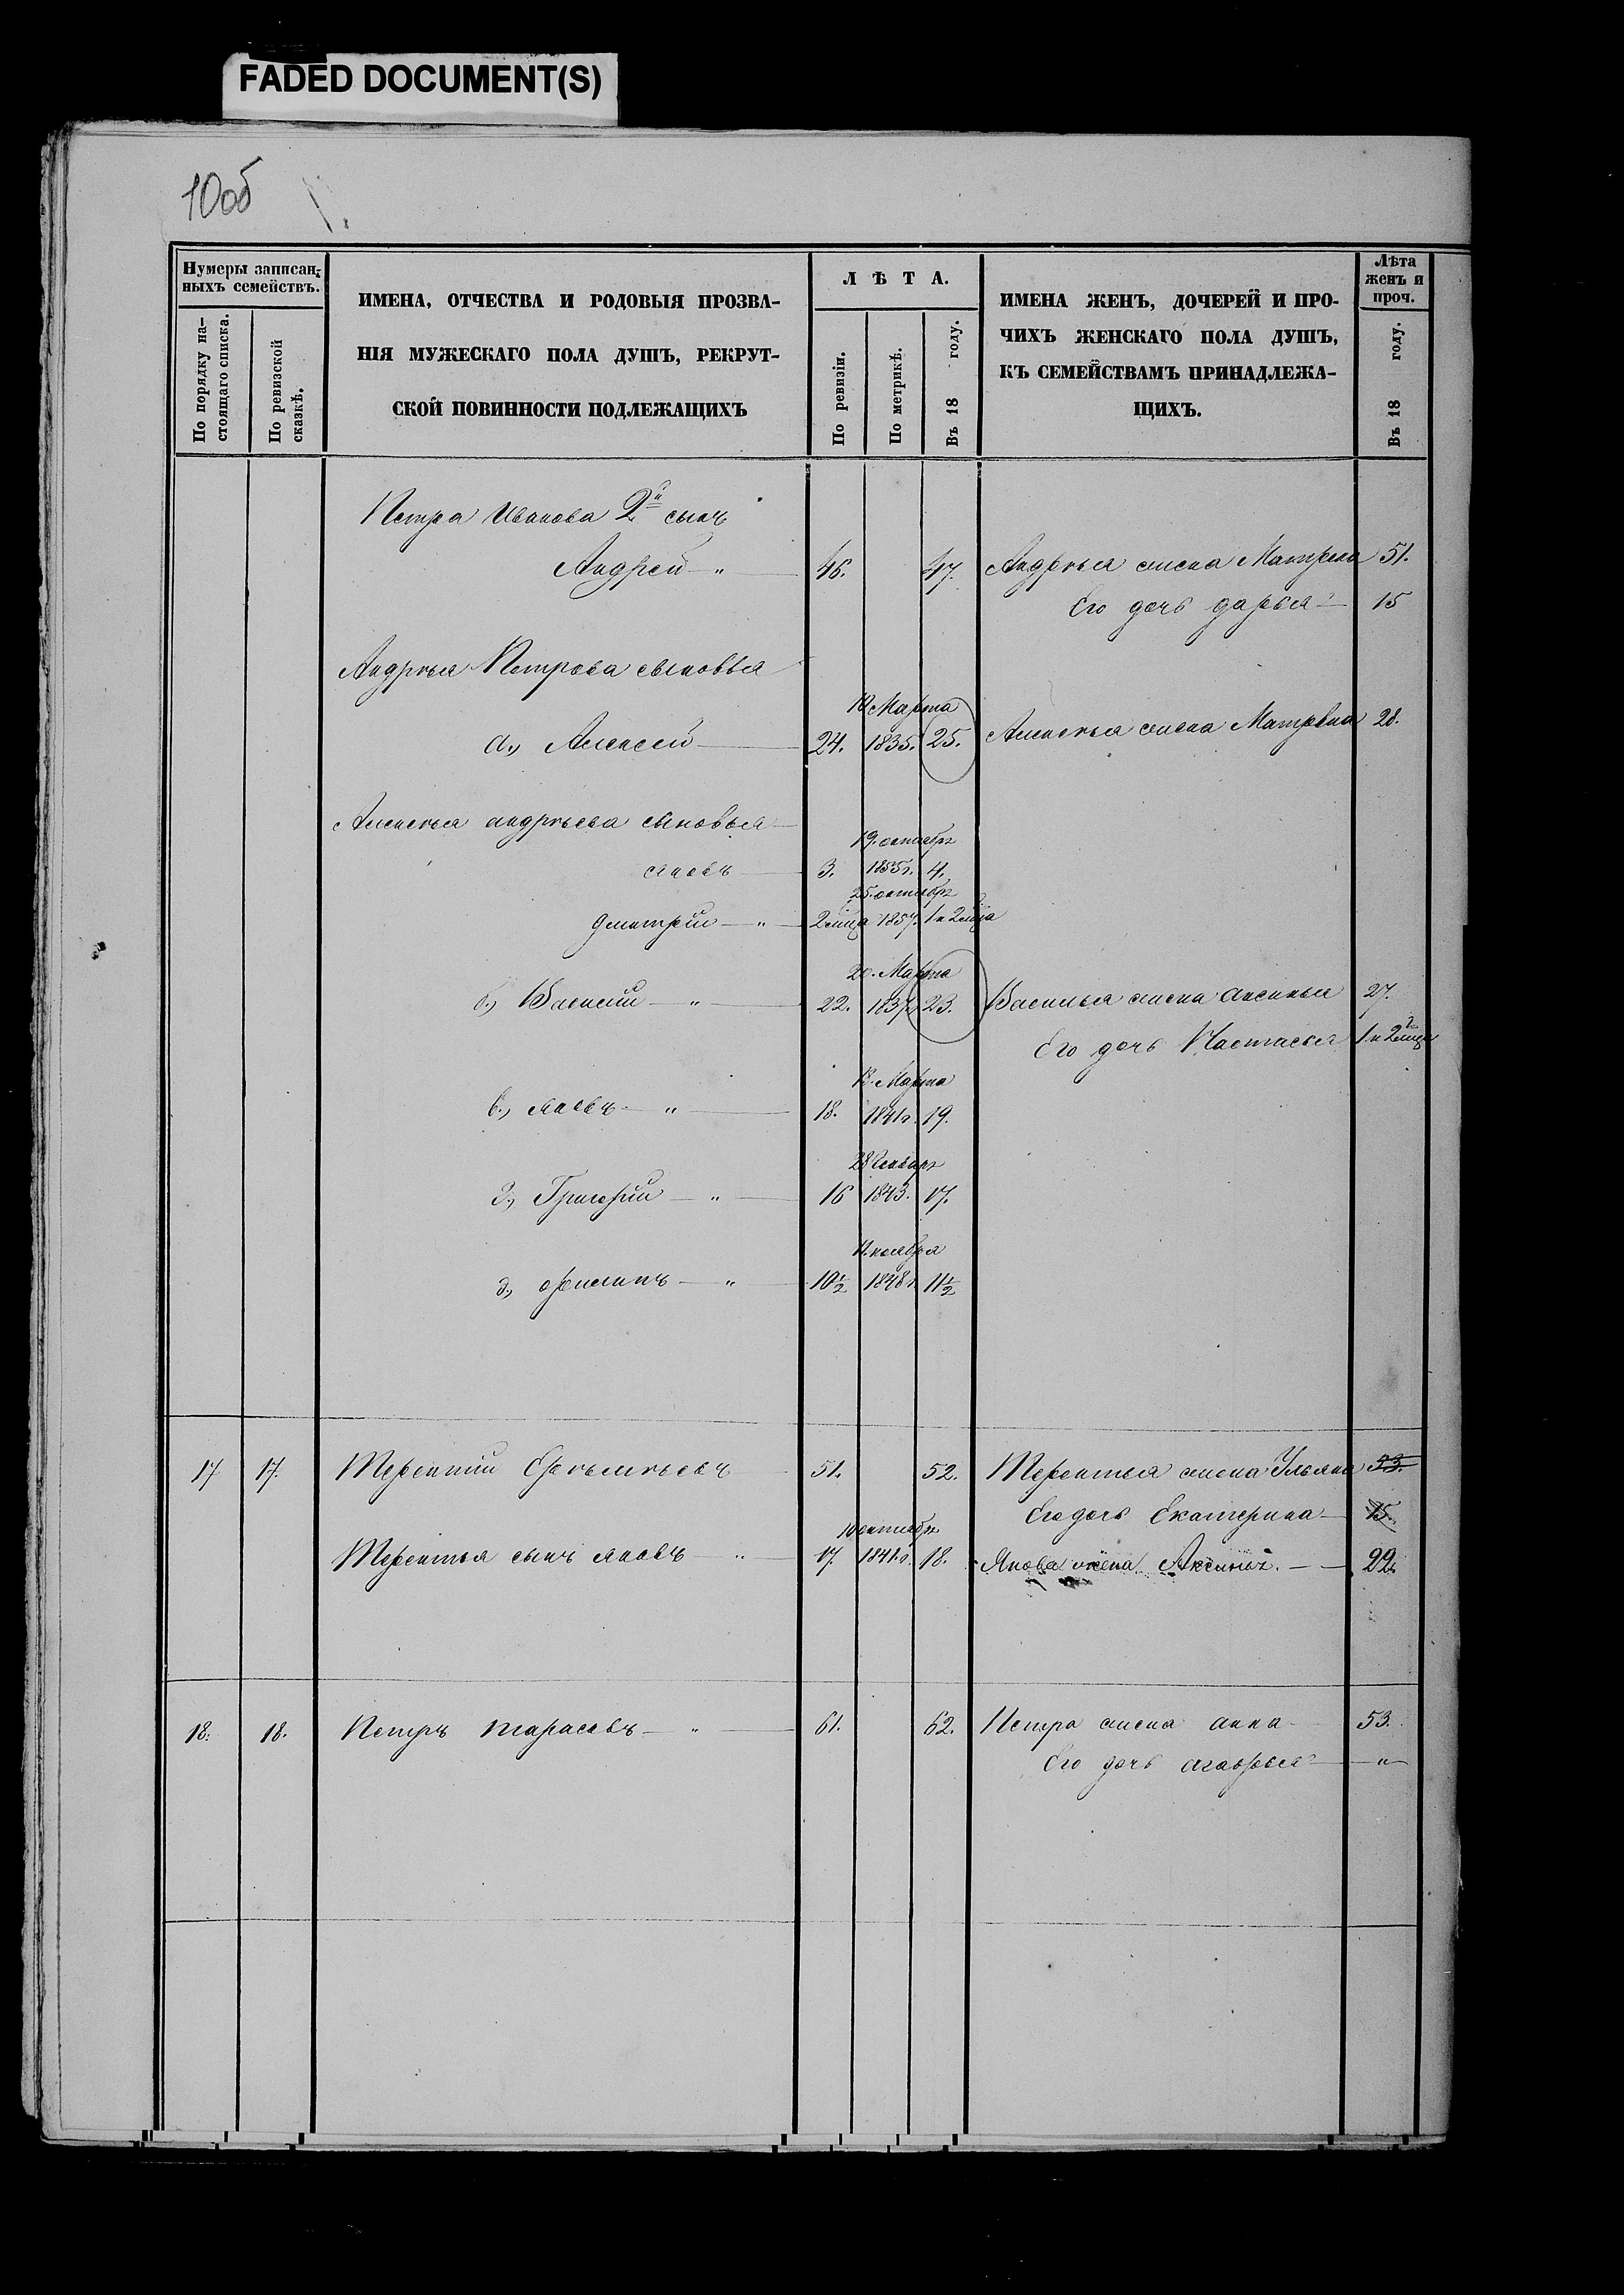 FADED DOCUMENT(S)
10об
Нумеры записан-
ныхъ семействъ.
По порядку на-
стоящаго списка.
По ревизской
сказкѣ.
ИМЕНА, ОТЧЕСТВА И РОДОВЫЯ ПРОЗВА-
НІЯ МУЖЕСКАГО ПОЛА ДУШЪ, РЕКРУТ-
СКОЙ ПОВИННОСТИ ПОДЛЕЖАЩИХЪ
ЛѢТА.
По ревизіи.
По метрикѣ.
Въ 18 году.
ИМЕНА ЖЕНЪ, ДОЧЕРЕЙ И ПРО-
ЧИХЪ ЖЕНСКАГО ПОЛА ДУШЪ,
КЪ СЕМЕЙСТВАМЪ ПРИНАДЛЕЖА-
ЩИХЪ.
Лѣта
женъ и
проч.
Въ 18 году.
Петра Иванова 2й сынъ
Андрей — " — 46. 47. Андрѣя жена Матрена 51.
Его дочь дарья — 15
Андрѣя Петрова сыновья
Марта
а.) Алексей — 24. 1835. 25. Алексѣя жена Матрѣна 28.
Алексѣя андрѣева сыновья —
19. октября
яковъ — 3. 1855г. 4.
25. октября
дмитрій — " — 2 мца 1857. 1 и 2 мца
20. Марта
б.) Василій — " — 22. 1837. 23. Василья жена аксинья 27.
Его дочь Настасья 1 и 2 мца
Марта
в.) яковъ — " — 18. 1841г. 19.
28 Генваря
г.) Григорій — " — 16 1843. 17.
ноября
д.) филипъ — " — 10½ 1848г. 11½
17. 17. Терентій Еремѣевъ 51. 52. Терентья жена Ульяна 53.
Его дочь Екатерина — 15.
10 октября
Терентья сынъ яковъ — " — 17 1841.г. 18. Якова жена Аксинія. — 22.
18. 18. Петръ тарасовъ — " — 61. 62. Петра жена анна 53.
Его дочь агафья — "